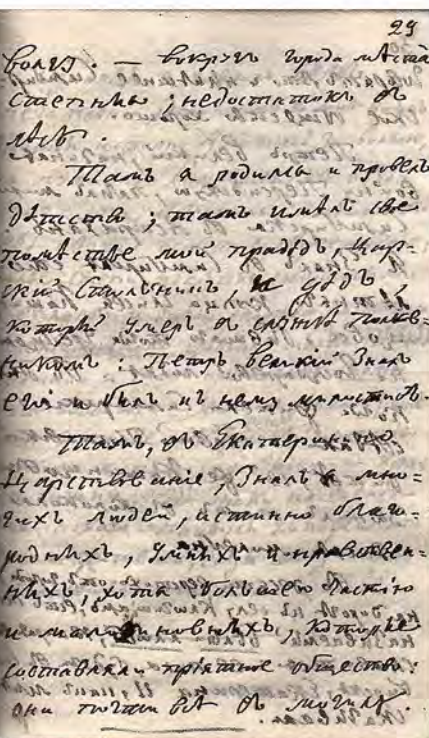 29
волгу. — вокругъ города мѣста
степныя; недостатокъ въ
лѣсѣ.
Тамъ я родился и провелъ
дѣтство; тамъ имѣлъ свое
помѣстье мой прадѣдъ, Цар-
скій Стольникъ, и дѣдъ,
который умеръ въ службѣ полков-
никомъ: Петръ великій зналъ
его и былъ къ нему милостивъ.
Тамъ, въ Екатеринино
Царствованіе, зналъ я мно-
гихъ людей, истинно благо-
родныхъ, умныхъ и нравствен-
ныхъ, хотя большею частію
новныхъ, которые
составляли пріятное общество:
они почти всѣ въ могилѣ.